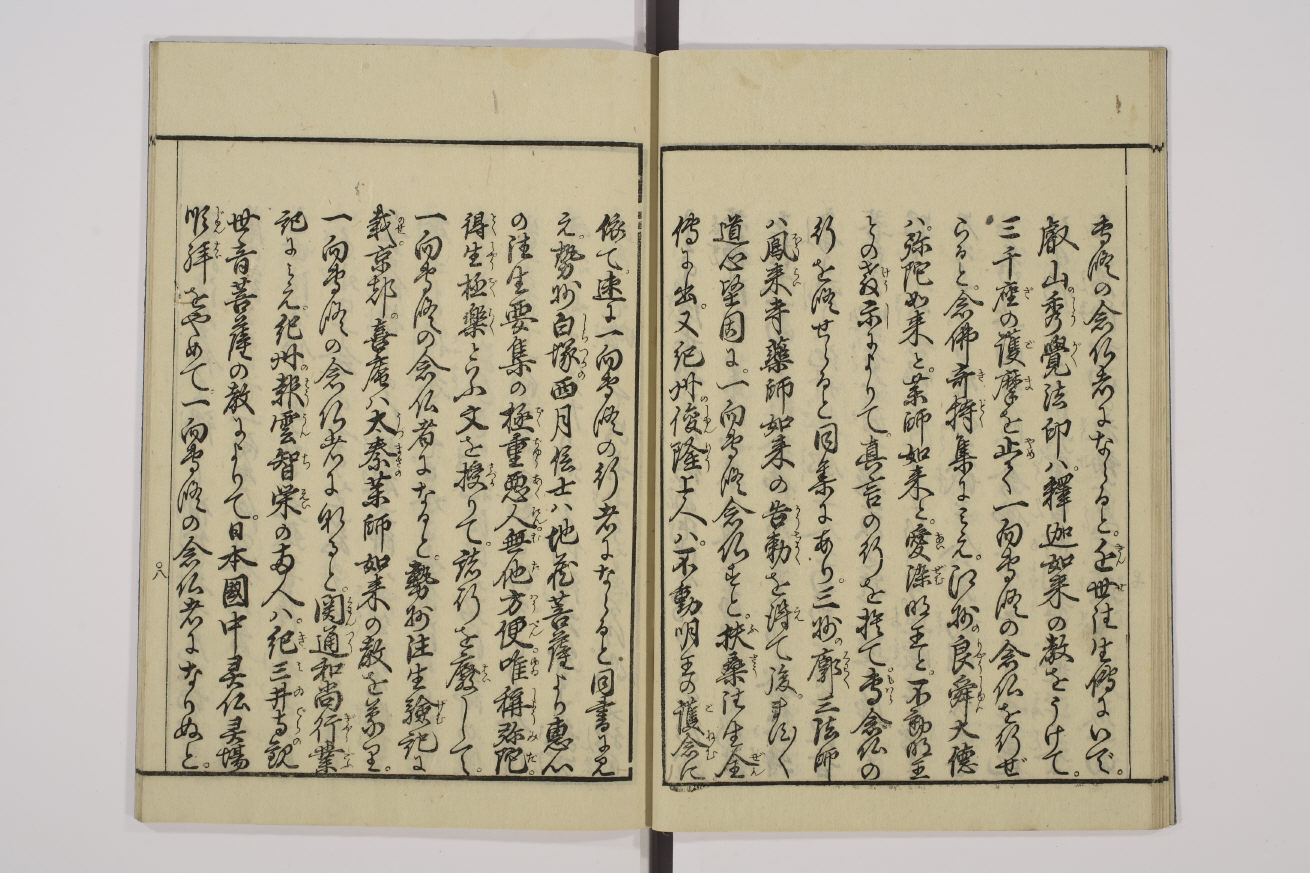 専修の念仏者にならると。近世往生傳にいで。
叡山秀覺法印ハ。釋迦如来の教をうけて。
三千座の護摩を止て一向専修の念仏を行ぜ
らると。念佛奇特集にみえ。江州良舜大徳
ハ。弥陀如来と。薬師如来と。愛染明王と。不動明王
との教示によりて。真言の行を捨て専念仏の
行を修せらると同集にあり。三州廓三法師
ハ鳳来寺薬師如来の告勅を得て後。
道心堅固に。一向専修念仏すと。扶桑往生全
傳に出。又紀州俊隆上人ハ。不動明王の護念に
依て。速に一向専修の行者にならると同書に見
え。勢州白塚西月信士ハ地蔵菩薩より恵心
の往生要集の極重悪人無他方便唯稱弥陀
得生極楽といふ文を授りて。諸行を廢して。
一向専修の念仏者になると。勢州往生験記に
載。京都喜庵ハ太秦薬師如来の教を蒙り。
一向専修の念仏者になると。関通和尚行業
記にみえ。紀州報雲智栄の両人ハ。紀三井寺観
世音菩薩の教によりて。日本國中灵仏灵場
順拝をやめて。一向専修の念仏者になりぬと。
八